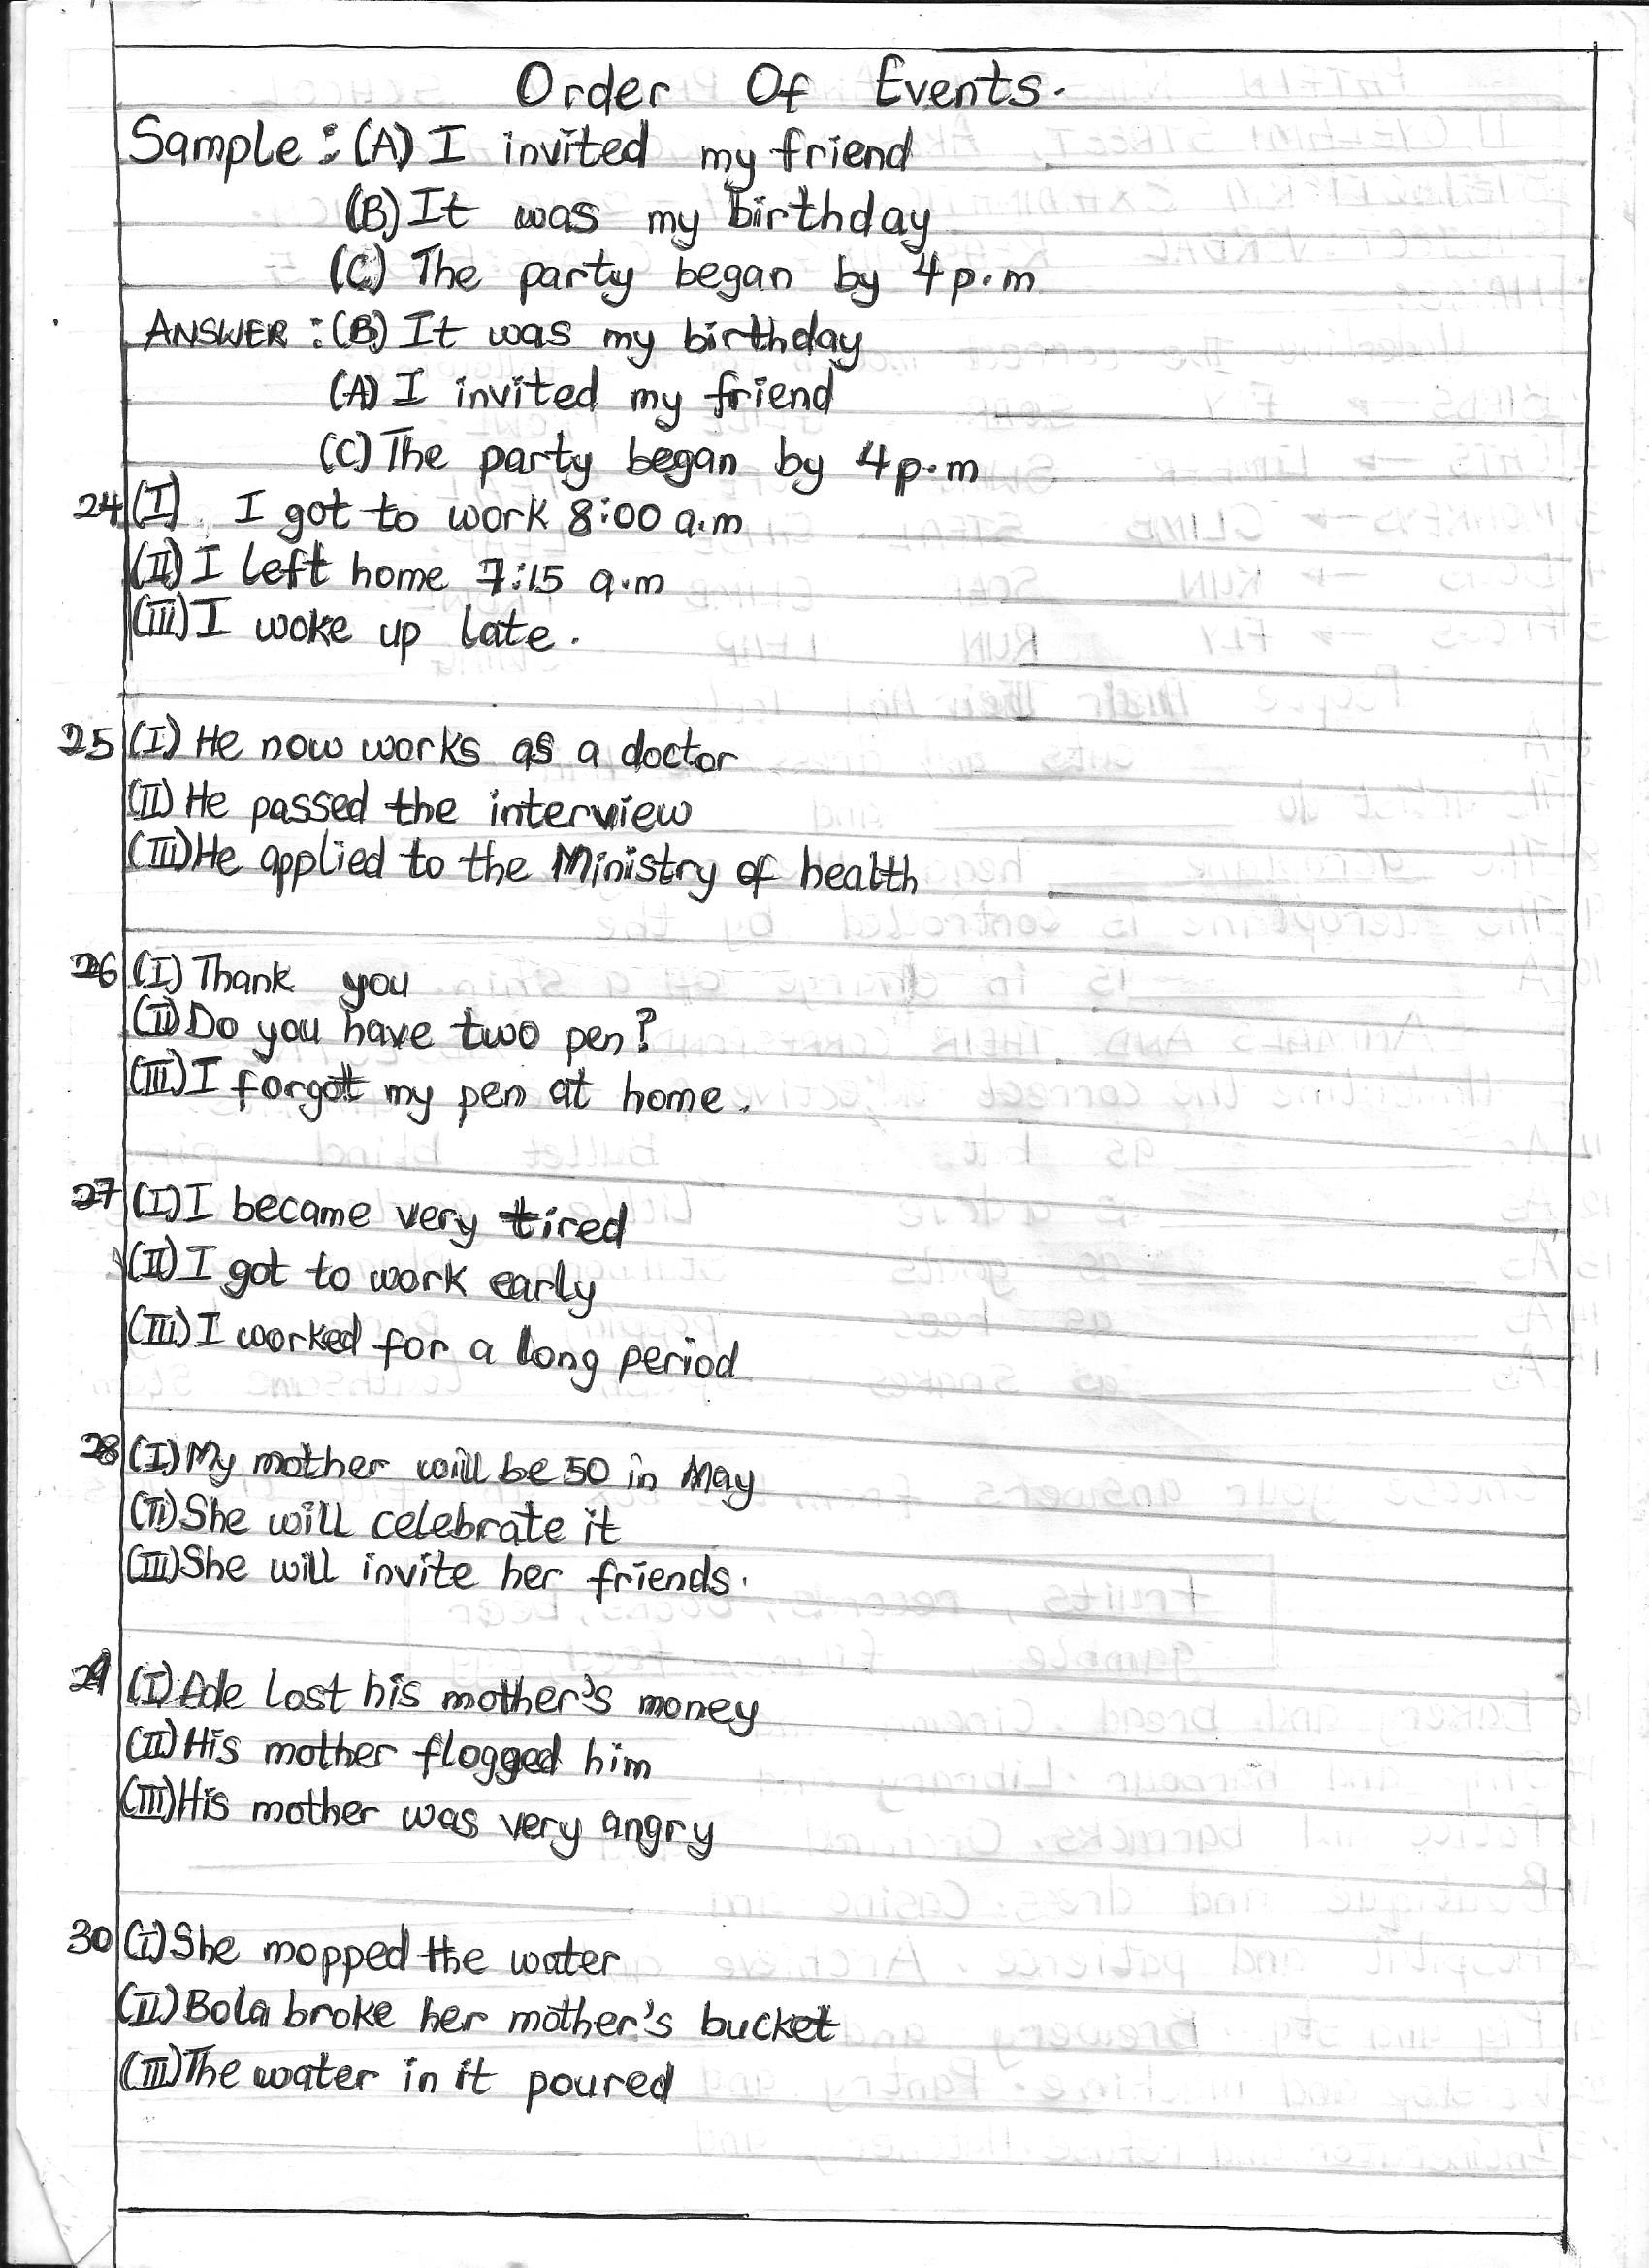 Order Of Events.
Sample : (A) I invited my friend
(B) It was my birthday
(C) The party began by 4p.m
ANSWER : (B) It was my birthday
(A) I invited my friend
(C) The party began by 4p.m
24 (I) I got to work 8:00 a.m
(II) I left home 7:15 a.m
(III) I woke up late.
25 (I) He now works as a doctor
(II) He passed the interview
(III) He applied to the Ministry of health
26 (I) Thank you
(II) Do you have two pen?
(III) I forgot my pen at home.
27 (I) I became very tired
(II) I got to work early
(III) I worked for a long period
28 (I) My mother will be 50 in May
(II) She will celebrate it
(III) She will invite her friends.
29 (I) Ade lost his mother's money
(II) His mother flogged him
(III) His mother was very angry
30 (I) She mopped the water
(II) Bola broke her mother's bucket
(III) The water in it poured